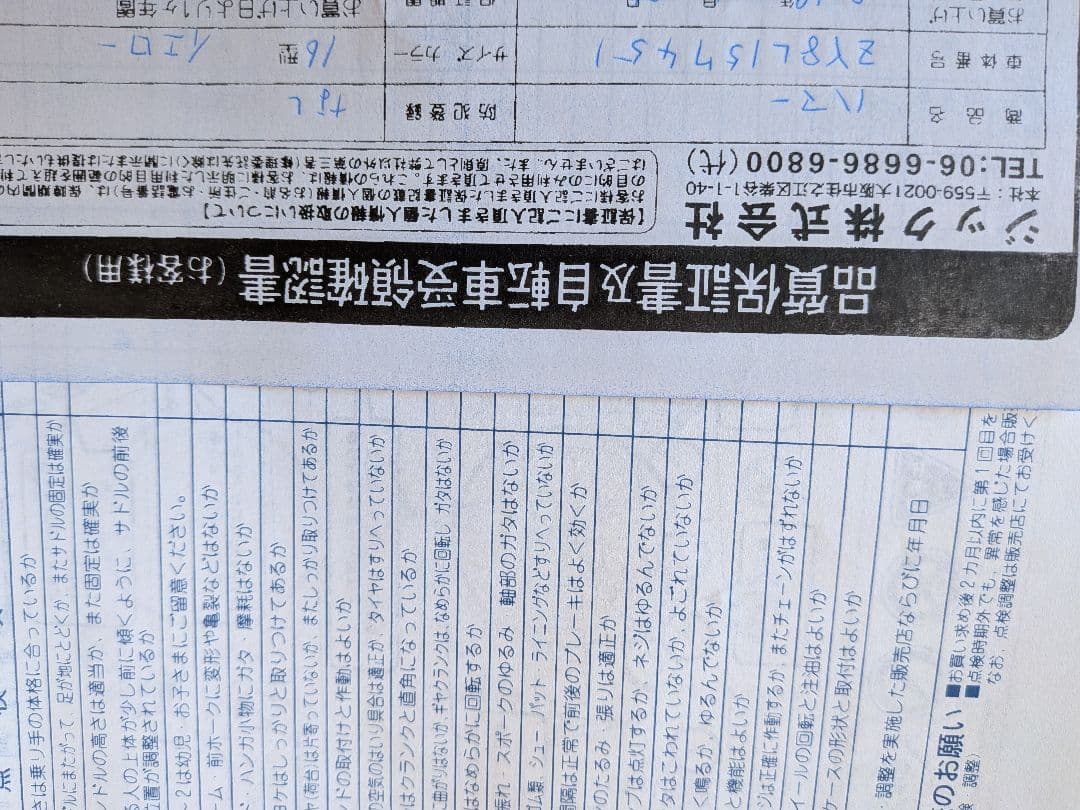 品質保証書及自転車受領確認書（お客様用）
ジック株式会社
本社：〒559-0021大阪市住之江区柴谷1-1-40
TEL:06-6686-6800(代)
【保証書にご記入頂きました個人情報の取扱いについて】
お客様にご記入頂きました保証書記載の個人情報（お名前・ご住所・お電話番号）は、保証期間内
の目的にのみ利用させて頂きます。これらの情報は、お客様に明示した利用目的の範囲を超えて利
はございません。また、原則として弊社以外の第三者（修理委託先は除く）に開示または提供もいたし
商品名 ハマー 防犯登録 なし
車体番号 ZY8L157451 サイズ カラー 16型 イエロー
お買い上げ
お買い上げ日より1ヶ年間
点
は乗り手の体格に合っているか
ルにまたがって、足が地にとどくか、またサドルの固定は確実か
ンドルの高さは適当か、また固定は確実か
る人の上体が少し前に傾くように、サドルの前後
位置が調整されているか
～2は幼児、お子さまにご留意ください。
ーム・前ホークに変形や亀裂などはないか
ド・ハンガ小物にガタ 摩耗はないか
ヨケはしっかりと取りつけてあるか
ヤ(荷台は片寄っていないか、またしっかり取りつけてあるか
ンドの取付けと作動はよいか
の空気のはいり具合は適正か、タイヤはすりへっていないか
はクランクと直角になっているか
曲がりはないか、ギヤクランクは、なめらかに回転し ガタはないか
はなめらかに回転するか
振れ・スポークのゆるみ 軸部のガタはないか
ゴム類 シュー パット ライニングなどすりへっていないか
間隔は正常で前後のブレーキはよく効くか
のたるみ・張りは適正か
プは点灯するか、ネジはゆるんでないか
タはこわれていないか、よごれていないか
く鳴るか、ゆるんでないか
と機能はよいか
ジは正確に作動するか、またチェーンがはずれないか
イールの回転と注油はよいか
ケースの形状と取付はよいか
調整を実施した販売店ならびに年月日
のお願い
調整）
■お買い求め後2カ月以内に第1回目を
■点検時期外でも、異常を感じた場合販
なお、点検調整は販売店にてお受けく